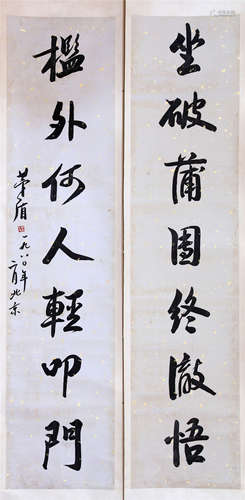 坐破蒲團終澈悟
檻外何人輕叩門
茅盾
一九八〇年
二月北京